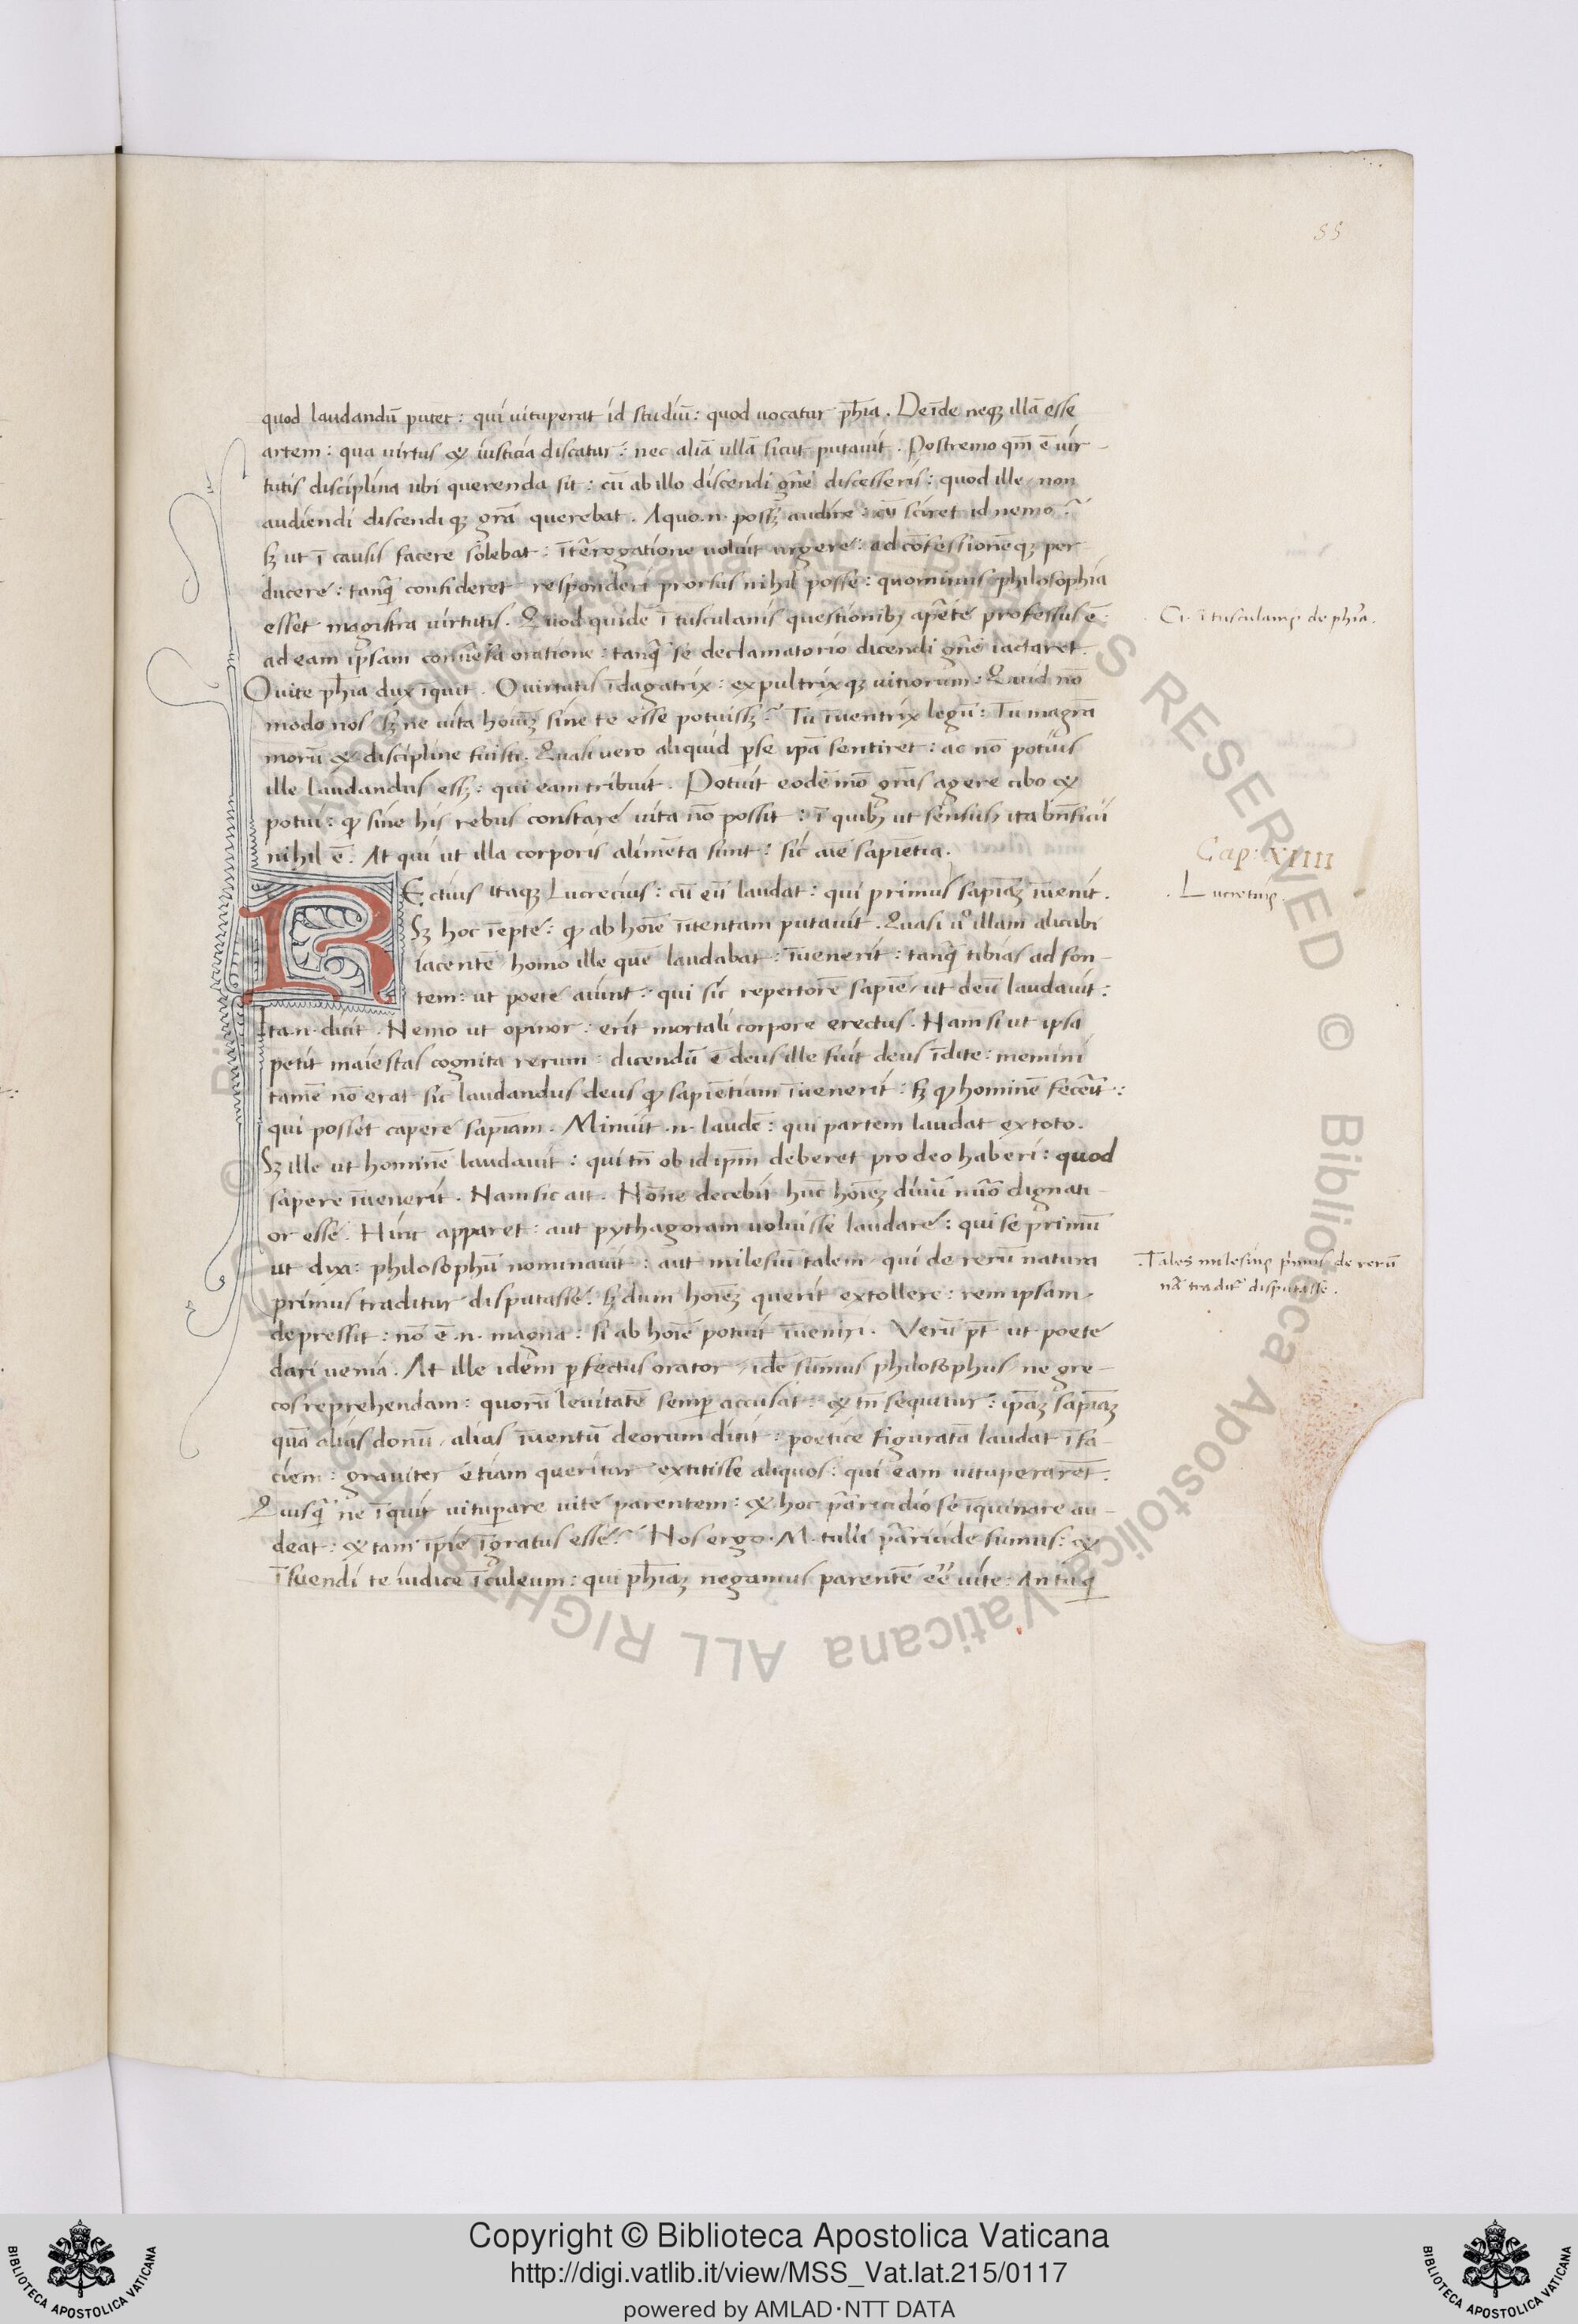 55
quod laudandū putet : qui uituperat id studiū : quod uocatur ph̄ia . Deīde neqȝ illā esse
artem : qua uirtus & iusticia discatur : nec aliā ullā sicut putauit . Postremo qm̄ ē uir-
tutis disciplina ubi querenda sit : cū ab illo discendi gn̄e discesseris : quod ille non
audiendi discendiqȝ grā querebat . A quo .n. possȝ audire : cū sciret id nemo ?
sȝ ut ī causis facere solebat : īterrogatione uoluit urgere : ad cōfessionēqȝ per
ducere : tanq̄ consideret responderi prorsus nihil posse : quominus philosophia
esset magistra uirtutis . Quod quidē ī tusculanis questionibȝ ap̄te professus ē
ad eam ip̄sam conuersa oratione : tanq̄ se declamatorio dicendi gn̄e iactaret .
O uite ph̄ia dux īquit . O uirtutis īdagatrix : expultrixqȝ uitiorum : Quid nō
modo nos sȝ ne uita hoīuȝ sine te esse potuissȝ ? Tu īuentrix legū : Tu magrā
morū & discipline fuisti . Quasi uero aliquid p̄se ip̄a sentiret : ac nō potius
ille laudandus essȝ : qui eam tribuit . Potuit eodē mō grās agere cibo &
potui : ꝙ sine his rebus constare uita nō possit : ī quibȝ ut sensus ita bn̄ficii
nihil ē . At qui ut illa corporis alimēta sunt : sic aīe sapiētia .
REctius itaqȝ Lucrecius : cū eū laudat : qui primus sapīāȝ īuenit .
Sȝ hoc īepte : ꝙ ab hoīe īuentam putauit . Quasi ū illam alicubi
iacentē homo ille quē laudabat : īuenerit : tanq̄ tibias ad fon-
tem : ut poete aiunt : qui sic repertorē sapiē ut deū laudauit :
Ita .n. dicit . Nemo ut opinor : erit mortali corpore erectus . Nam si ut ipsa
petit maiestas cognita rerum : dicendū ē deus ille fuit deus īdite : memini
tamē nō erat sic laudandus deus ꝙ sapiētiam īuenerit : sȝ ꝙ hominē fecerit :
qui posset capere sapīam . Minuit .n. laudē : qui partem laudat ex toto .
Sȝ ille ut hominē laudauit : qui tn̄ ob id ipm̄ deberet pro deo haberi : quod
sapere īuenerit . Nam sic ait . Nōne decebit hūc hoīeȝ diuū nūō dignati-
or esse . Hinc apparet : aut pythagoram uoluisse laudare : qui se primū
ut dixi : philosophū nominauit : aut milesiū talem qui de rerū natura
primus traditur disputasse . sȝ dum hoīeȝ querit extollere : rem ipsam
depressit : nō ē .n. magna : si ab hoīe potuit īueniri . Verū pt̄ ut poete
dari uenia . At ille idem p̄fectus orator , idē sūmus philosophus ne gre-
cos reprehendam : quorū leuitatē semp̄ accusat : & tn̄ sequitur : ipāȝ sapīāȝ
quā alias donū , alias īuentū deorum dicit : poetice figuratā laudat ī fa-
ciem : grauiter etiam queritur extitisse aliquos : qui eam uituperarēt .
Quisq̄ ne īquit uitup̄are uite parentem : & hoc p̄ricidio se īquinare au-
deat : & tam īpie īgratus esse ? Nos ergo . M. tulli p̄ricide sumus : &
īsuendi te iudice ī culeum : qui ph̄iaȝ negamus parentē ēē uite . An tu q̄
Ci . ī tusculanis de phīa .
Cap : XIIII
. Lucretius .
. Tales milesius primus de rerū
nā traditʳ disputasse .
Copyright © Biblioteca Apostolica Vaticana
http://digi.vatlib.it/view/MSS_Vat.lat.215/0117
powered by AMLAD·NTT DATA
BIBLIOTECA APOSTOLICA VATICANA
BIBLIOTECA APOSTOLICA VATICANA
© Biblioteca Apostolica Vaticana ALL RIGHTS RESERVED © Biblioteca Apostolica Vaticana ALL RIGHTS RESERVED